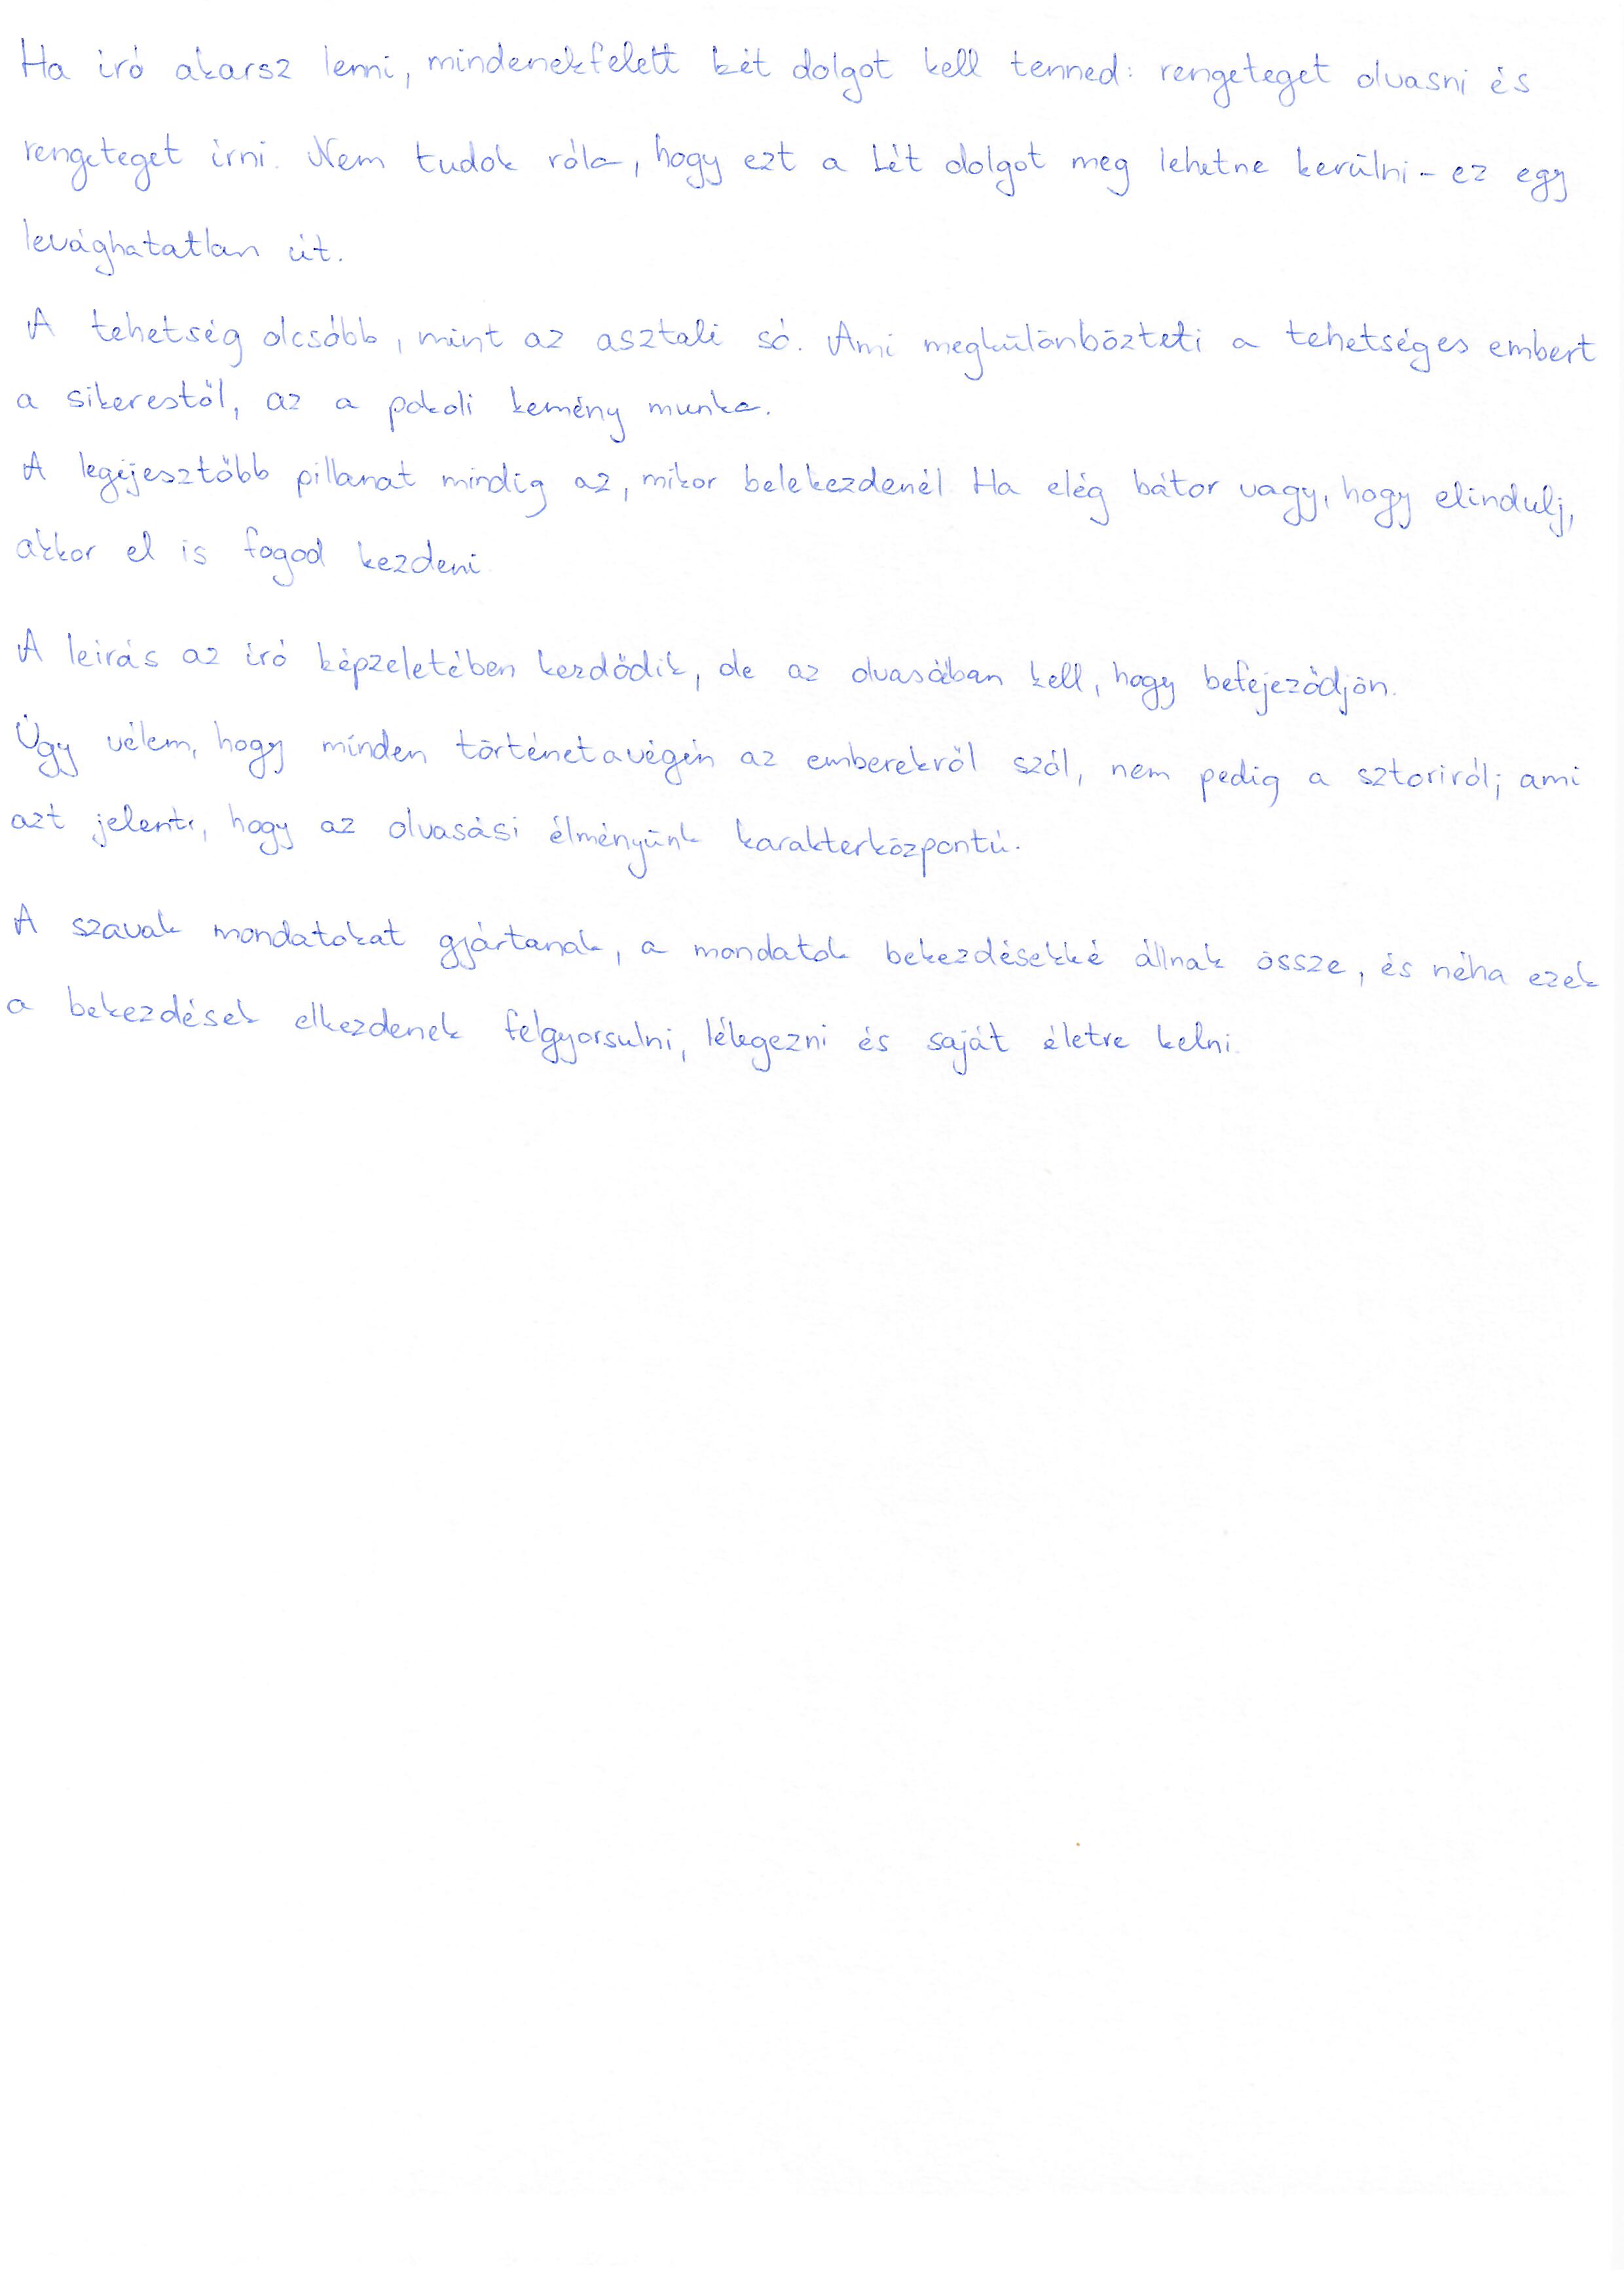 Ha író akarsz lenni, mindenekfelett két dolgot kell tenned: rengeteget olvasni és
rengeteget írni. Nem tudok róla, hogy ezt a két dolgot meg lehetne kerülni - ez egy
levághatatlan út.
A tehetség olcsóbb, mint az asztali só. Ami megkülönbözteti a tehetséges embert
a sikerestől, az a pokoli kemény munka.
A legijesztőbb pillanat mindig az, mikor belekezdenél. Ha elég bátor vagy, hogy elindulj,
akkor el is fogod kezdeni.
A leírás az író képzeletében kezdődik, de az olvasóban kell, hogy befejeződjön.
Úgy vélem, hogy minden történet a végén az emberekről szól, nem pedig a sztoriról; ami
azt jelenti, hogy az olvasási élményünk karakterközpontú.
A szavak mondatokat gyártanak, a mondatok bekezdésekké állnak össze, és néha ezek
a bekezdések elkezdenek felgyorsulni, lélegezni és saját életre kelni.